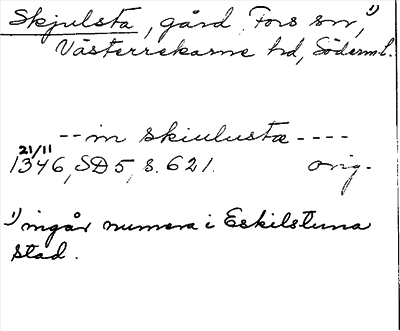 Skjulsta, gård, Fors sn,¹⁾
Västerrekarne hd, Söderml.
-- in skiulusta ----
21/11
1346, SD 5, s. 621. orig.
¹⁾ ingår numera i Eskilstuna
stad.